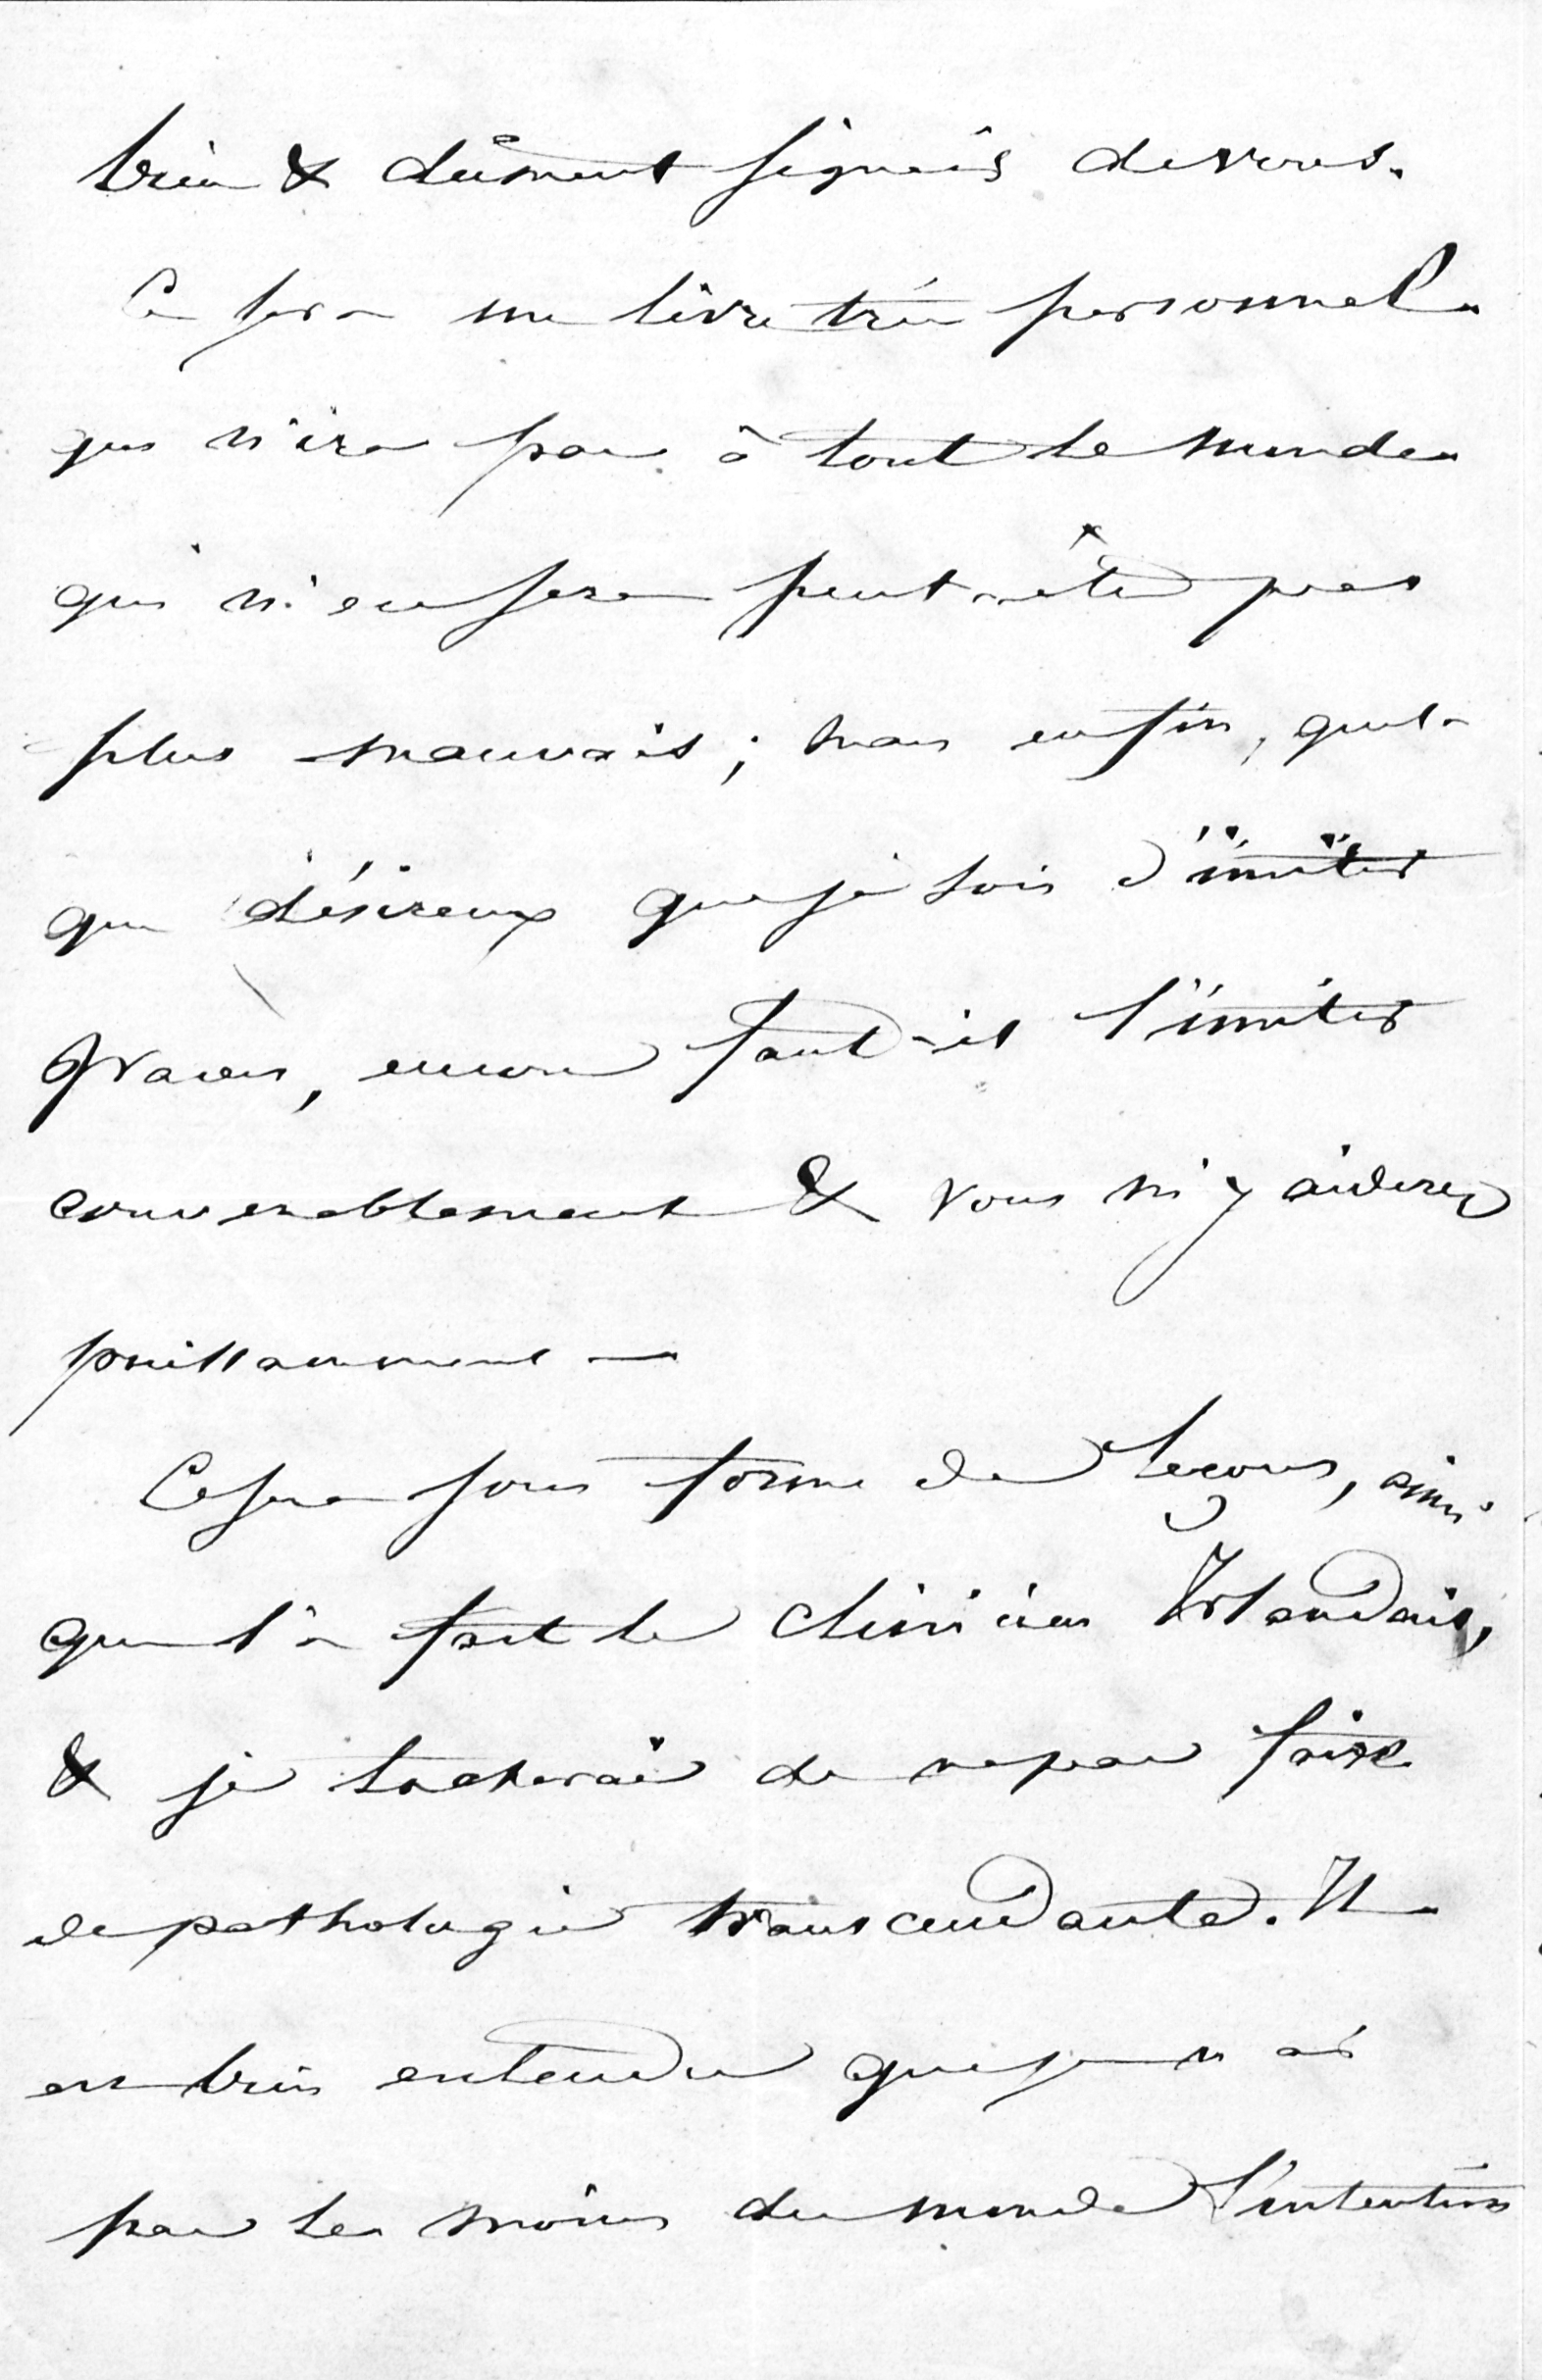 bien & dûment signés de vous.
Ce sera un livre très personnel
qui n'ira pas à tout le monde
qui n'en sera peut-être pas
plus mauvais; mais enfin, quel-
que désireux que je sois d'imiter
Graves, encore faut-il l'imiter
convenablement & vous m'y aiderez
puissamment —
Ce sera sous forme de leçons, ainsi
que l'a fait le clinicien Irlandais,
& je tacherai de ne pas faire
de pathologie transcendante. Il
est bien entendu que je n'ai
pas le moins du monde l'intention